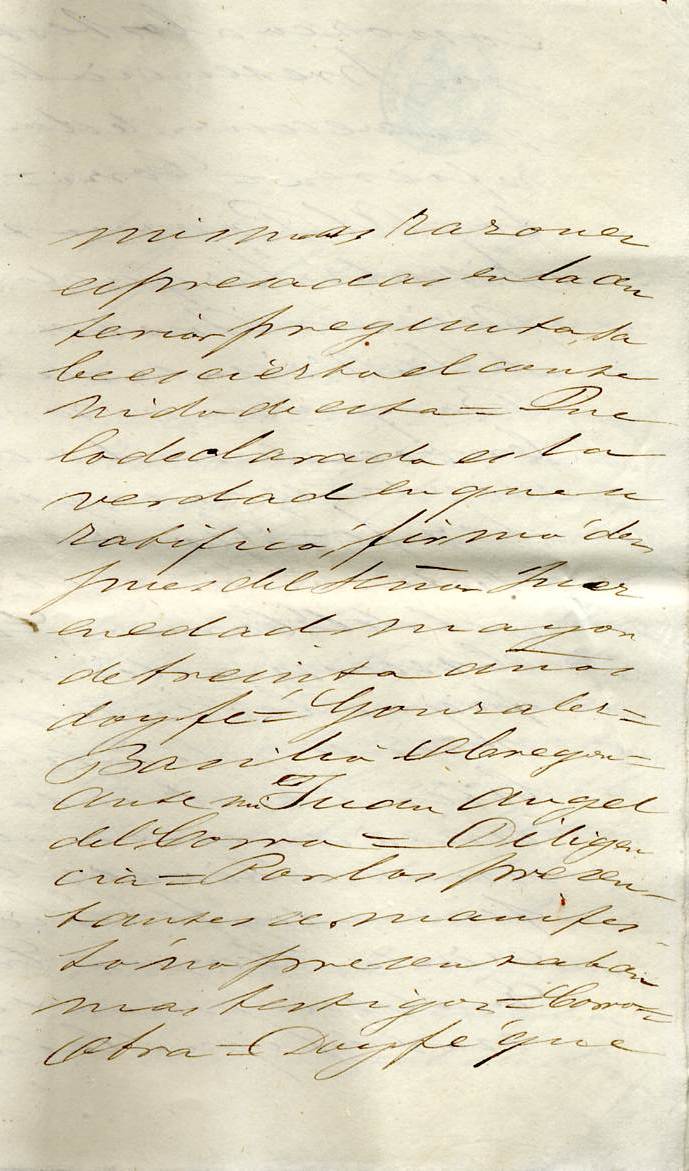 mismas razones
espresadas en la an
terior pregunta, sa
be es cierto el conte
nido de esta = Que
lo declarado es la
verdad en que se
ratificó, firmó des
pues del Señor Juez
en edad mayor
de treinta años
doy fé = Gonzales =
Basilio Obregon =
ante mi Juan Angel
del Corro = Diligen
cia = Por los presen-
tantes se manifes
tó no presentaban
mas testigos = Corro =
Otra = Doy fé que